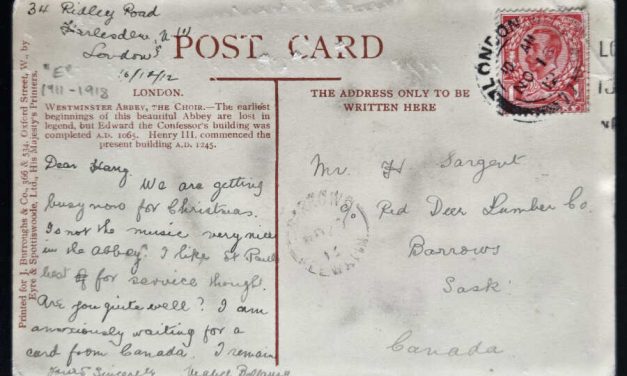 34 Ridley Road
Harlesden N.W
London
16/12/12
"E"
1911-1918
POST CARD
LONDON.
WESTMINSTER ABBEY, THE CHOIR.—The earliest
beginnings of this beautiful Abbey are lost in
legend, but Edward the Confessor's building was
completed A.D. 1065. Henry III. commenced the
present building A.D. 1245.
THE ADDRESS ONLY TO BE
WRITTEN HERE
Printed for J. Burroughs & Co., 366 & 534, Oxford Street, W., by
Eyre & Spottiswoode, Ltd., His Majesty's Printers.
Dear Harry
We are getting
busy now for Christmas.
Is not the music very nice
in the abbey? I like St Pauls
best for service though.
Are you quite well? I am
anxiously waiting for a
card from Canada. I remain
Yours Sincerely
Mr. Sargent
c/o Red Deer Lumber Co.
Barrows
Sask
Canada
LONDON